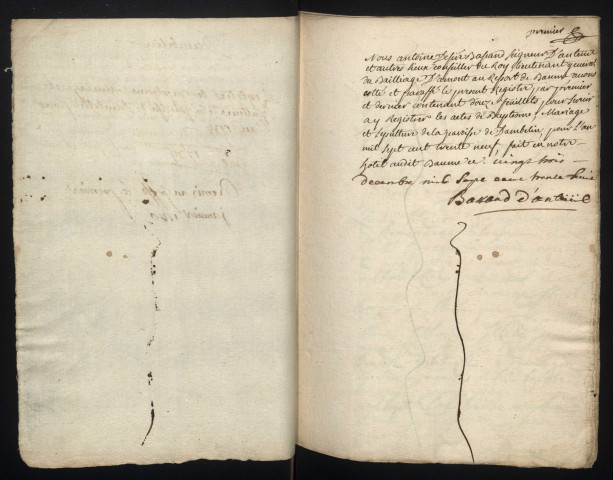 premier
Nous antoine Desiré Basand seigneur D'anteuil
et autres lieux conseiller du Roy lieutenant general
du Bailliage D'amont au Ressort de Baume avons
cotté et paraffé le present Registre, par premier
et dernier contenant douze feuillets, pour servir
a y Registrer les actes de Baptesme, Mariage
et sepulture de la paroisse de Dambelin, pour l'an
mil sept cent trente neuf, fait en notre
hotel audit Baume ce vingt trois
decembre mil sept cent trente huit
Basand d'anteüil